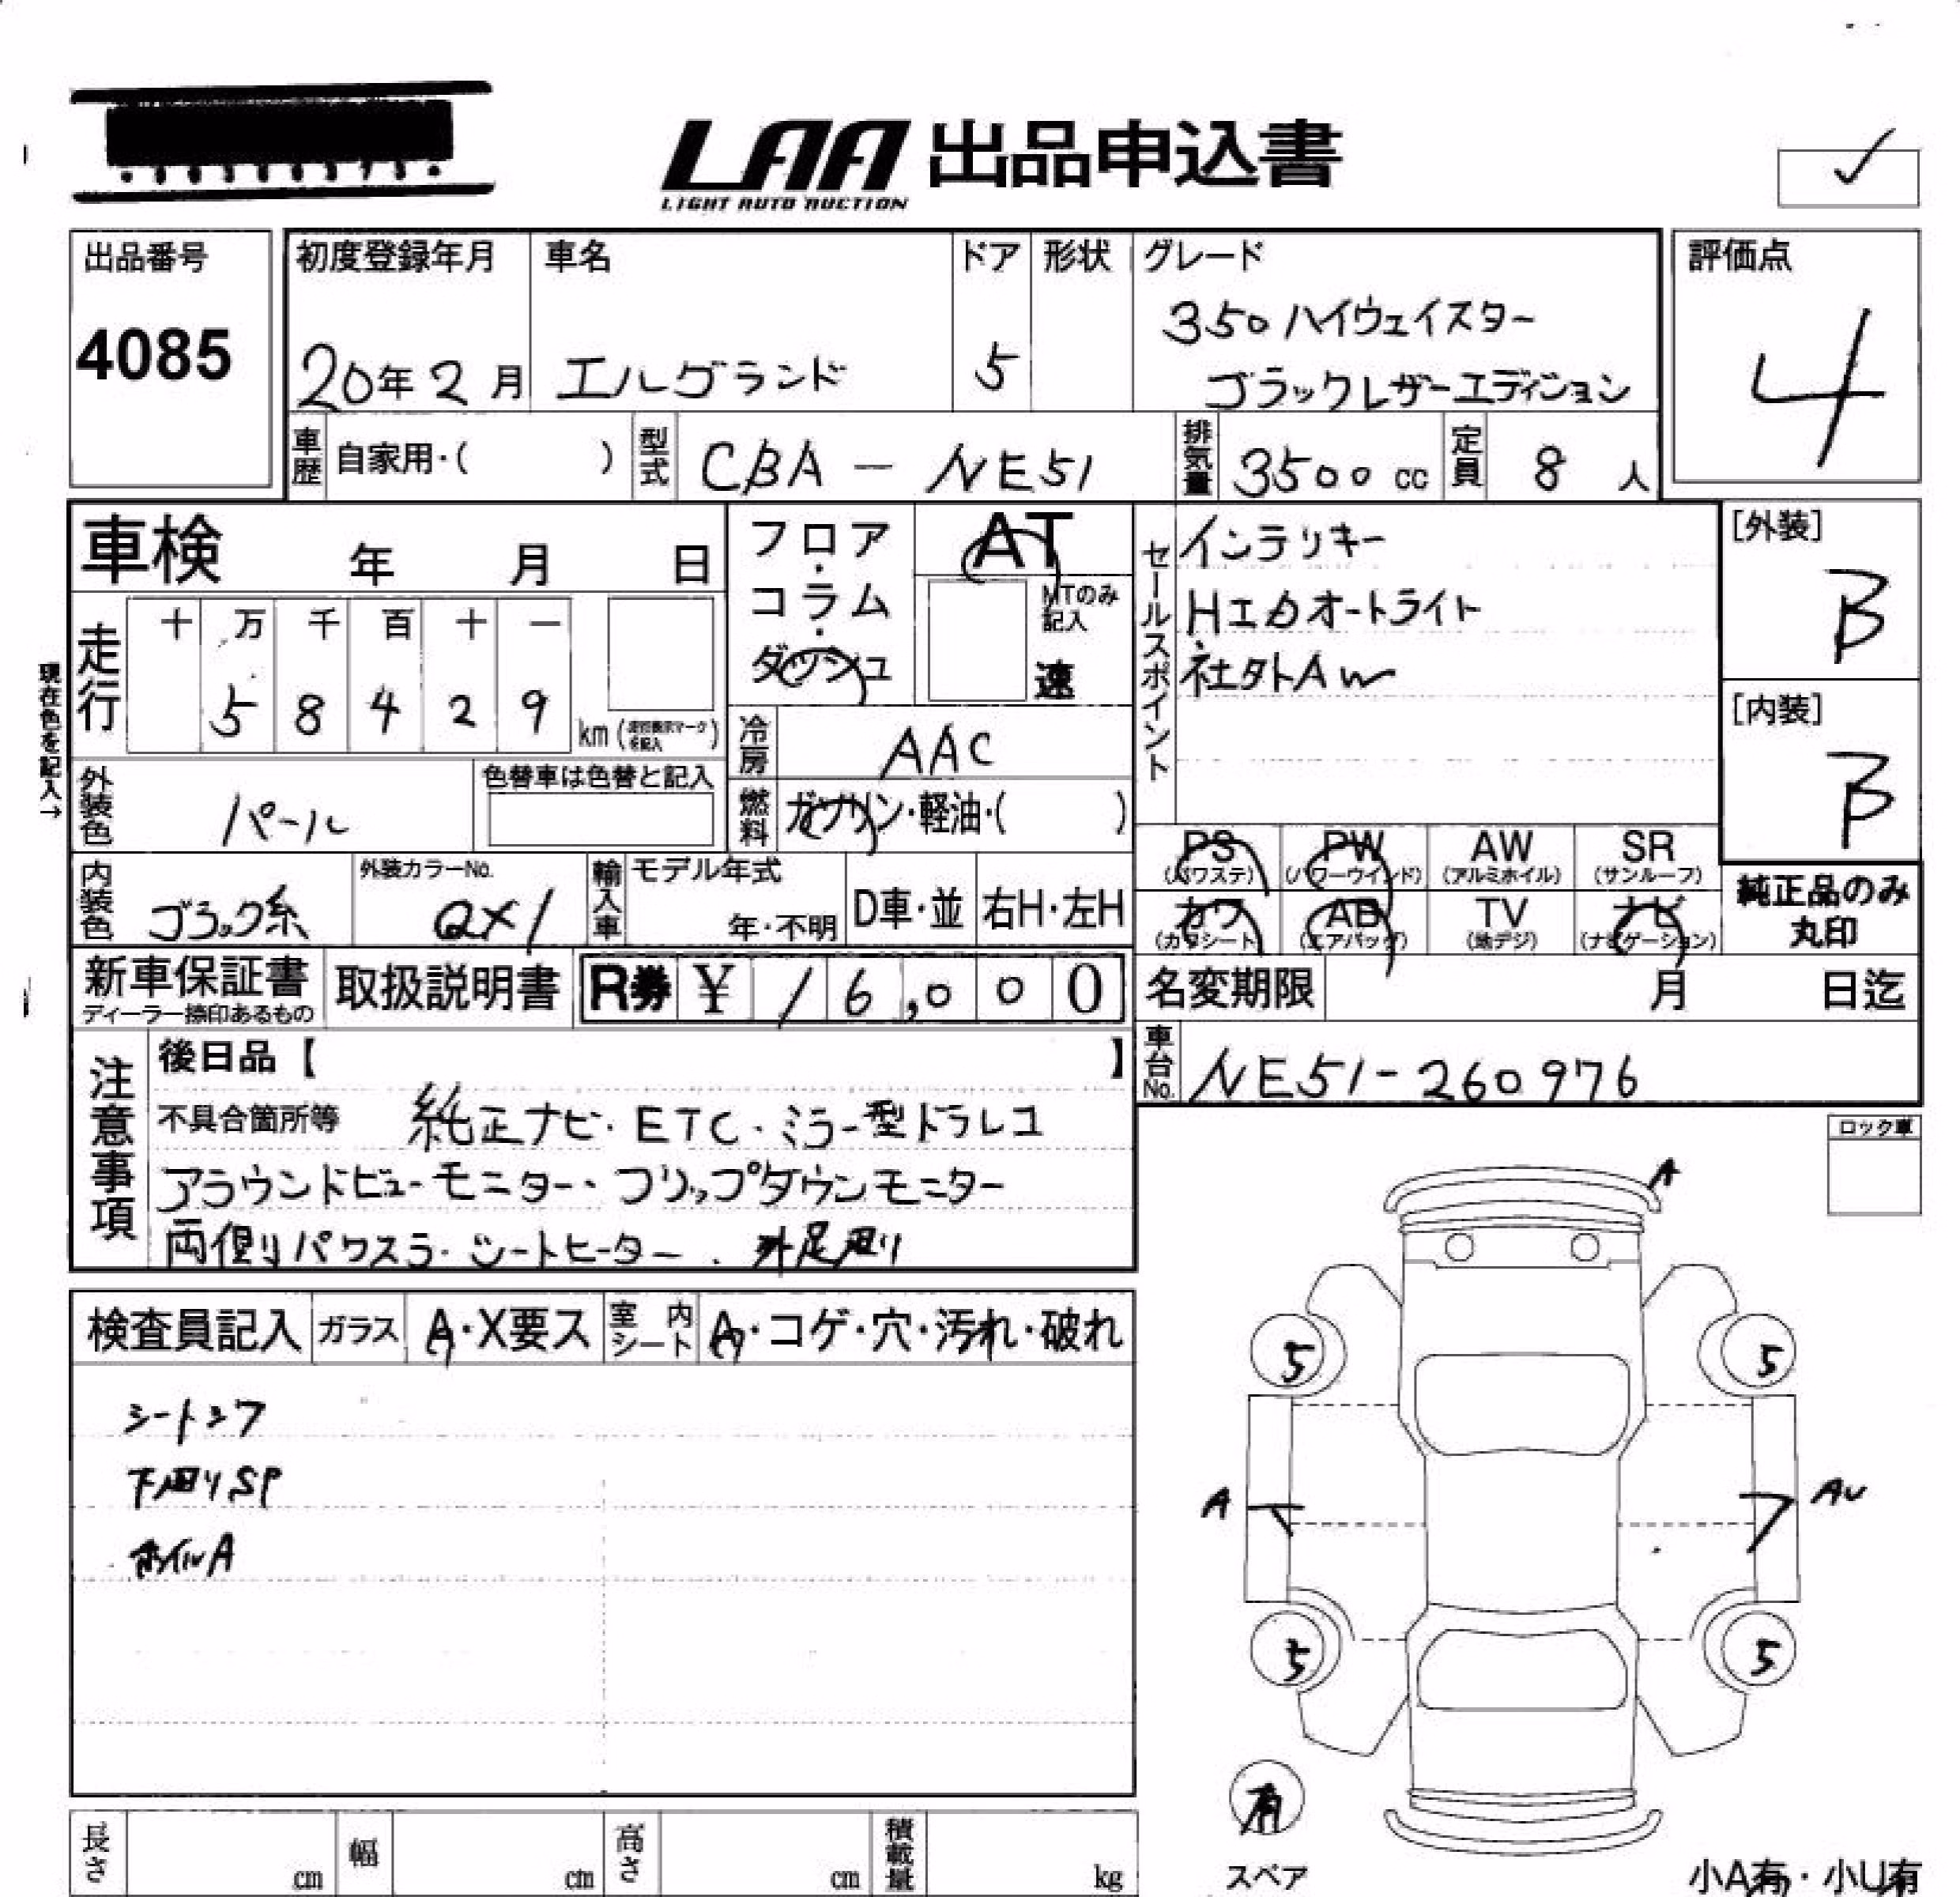 LAA 出品申込書
LIGHT AUTO AUCTION
出品番号
4085
初度登録年月
20年2月
車名
エルグランド
ドア
5
形状
グレード
350ハイウェイスター
ブラックレザーエディション
評価点
4
車歴 自家用・( )
型式 CBA-NE51
排気量 3500cc
定員 8人
車検 年 月 日
フロア・コラム・ダッシュ
AT
MTのみ記入
速
セールスポイント
インテリキー
HIDオートライト
社外AW
[外装]
B
[内装]
B
現在色を記入→
走行
十 万 千 百 十 一
5 8 4 2 9
km
冷房 AAC
燃料 ガソリン・軽油・( )
外装色 パール
色替車は色替と記入
内装色 ブラック系
外装カラーNo.
QX1
輸入車
モデル年式
年・不明
D車・並
右H・左H
PS (パワステ)
PW (パワーウインド)
AW (アルミホイル)
SR (サンルーフ)
カワ (カワシート)
AB (エアバッグ)
TV (地デジ)
ナビ (ナビゲーション)
純正品のみ
丸印
新車保証書
ディーラー捺印あるもの
取扱説明書
R券 ¥ 16,000
名変期限 月 日迄
車台No. NE51-260976
注意事項
後日品【 】
不具合箇所等 純正ナビ・ETC・ミラー型ドラレコ
アラウンドビューモニター・フリップダウンモニター
両側パワスラ・シートヒーター・
ロック車
検査員記入
ガラス A・X要ス
室内シート A・コゲ・穴・汚れ・破れ
シートシワ
下回りSP
ホイルA
A
5 5
A AU
5 5
有
スペア
小A有・小U有
長さ cm
幅 cm
高さ cm
積載量 kg